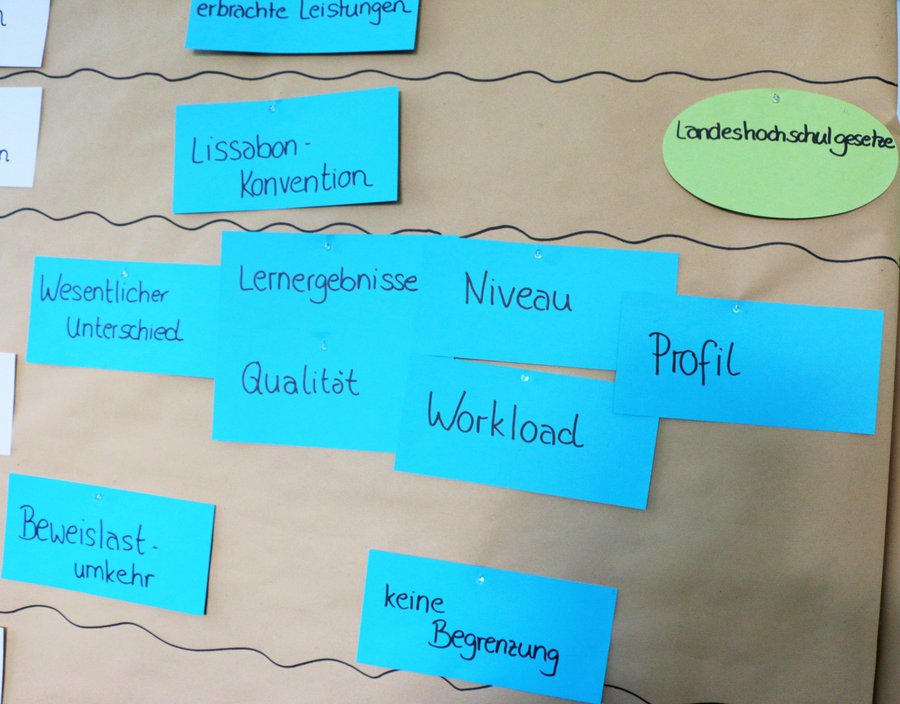 erbrachte Leistungen
Lissabon-
Konvention
Landeshochschulgesetze
Wesentlicher
Unterschied
Lernergebnisse
Niveau
Profil
Qualität
Workload
Beweislast-
umkehr
keine
Begrenzung